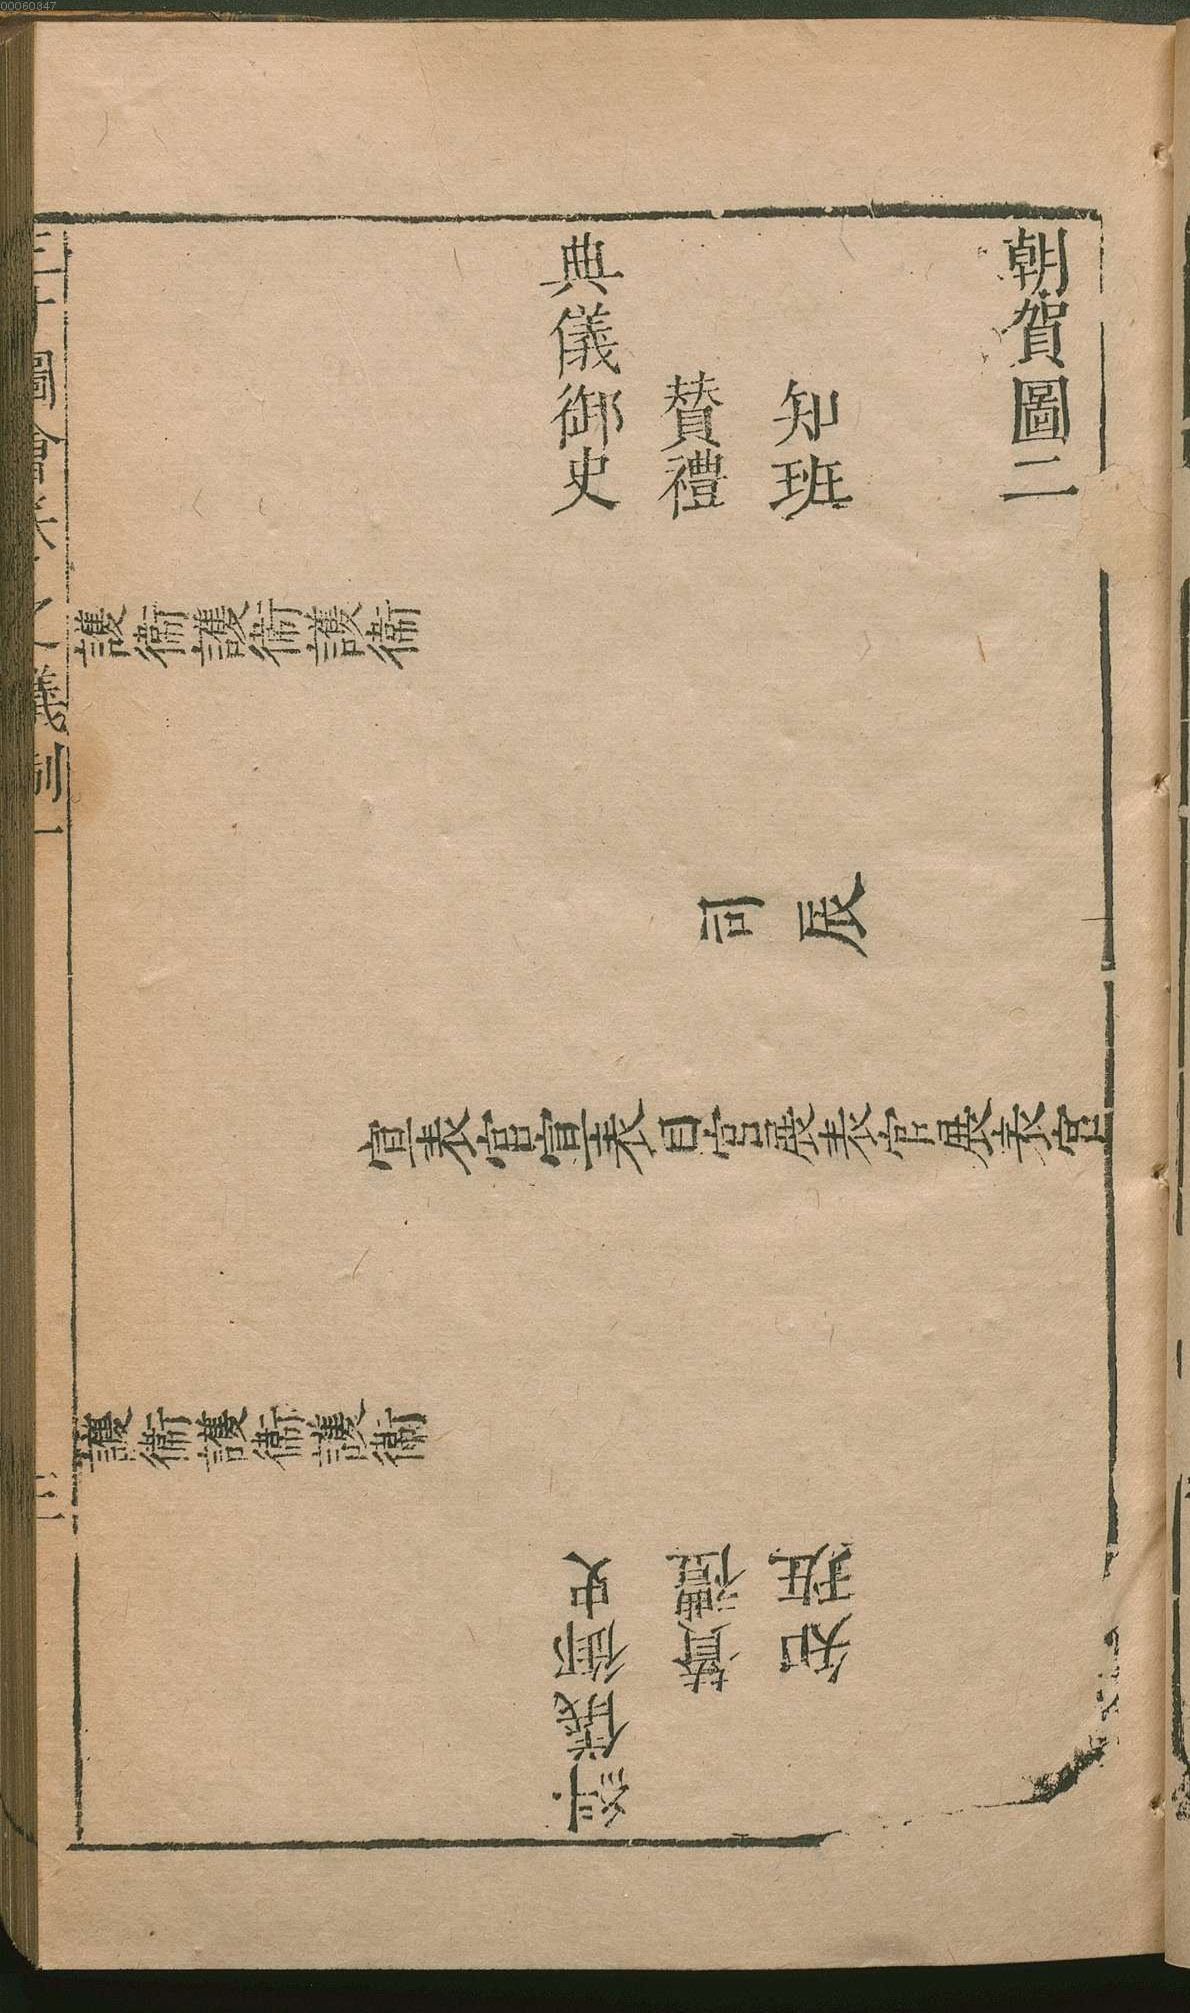 00060347
朝賀圖二
知班
贊禮
典儀御史
護衛護衛護衛
司辰
宣表官宣表目官展表官展表官
護衛護衛護衛
知班
贊禮
糾儀御史
圖會卷之儀制一